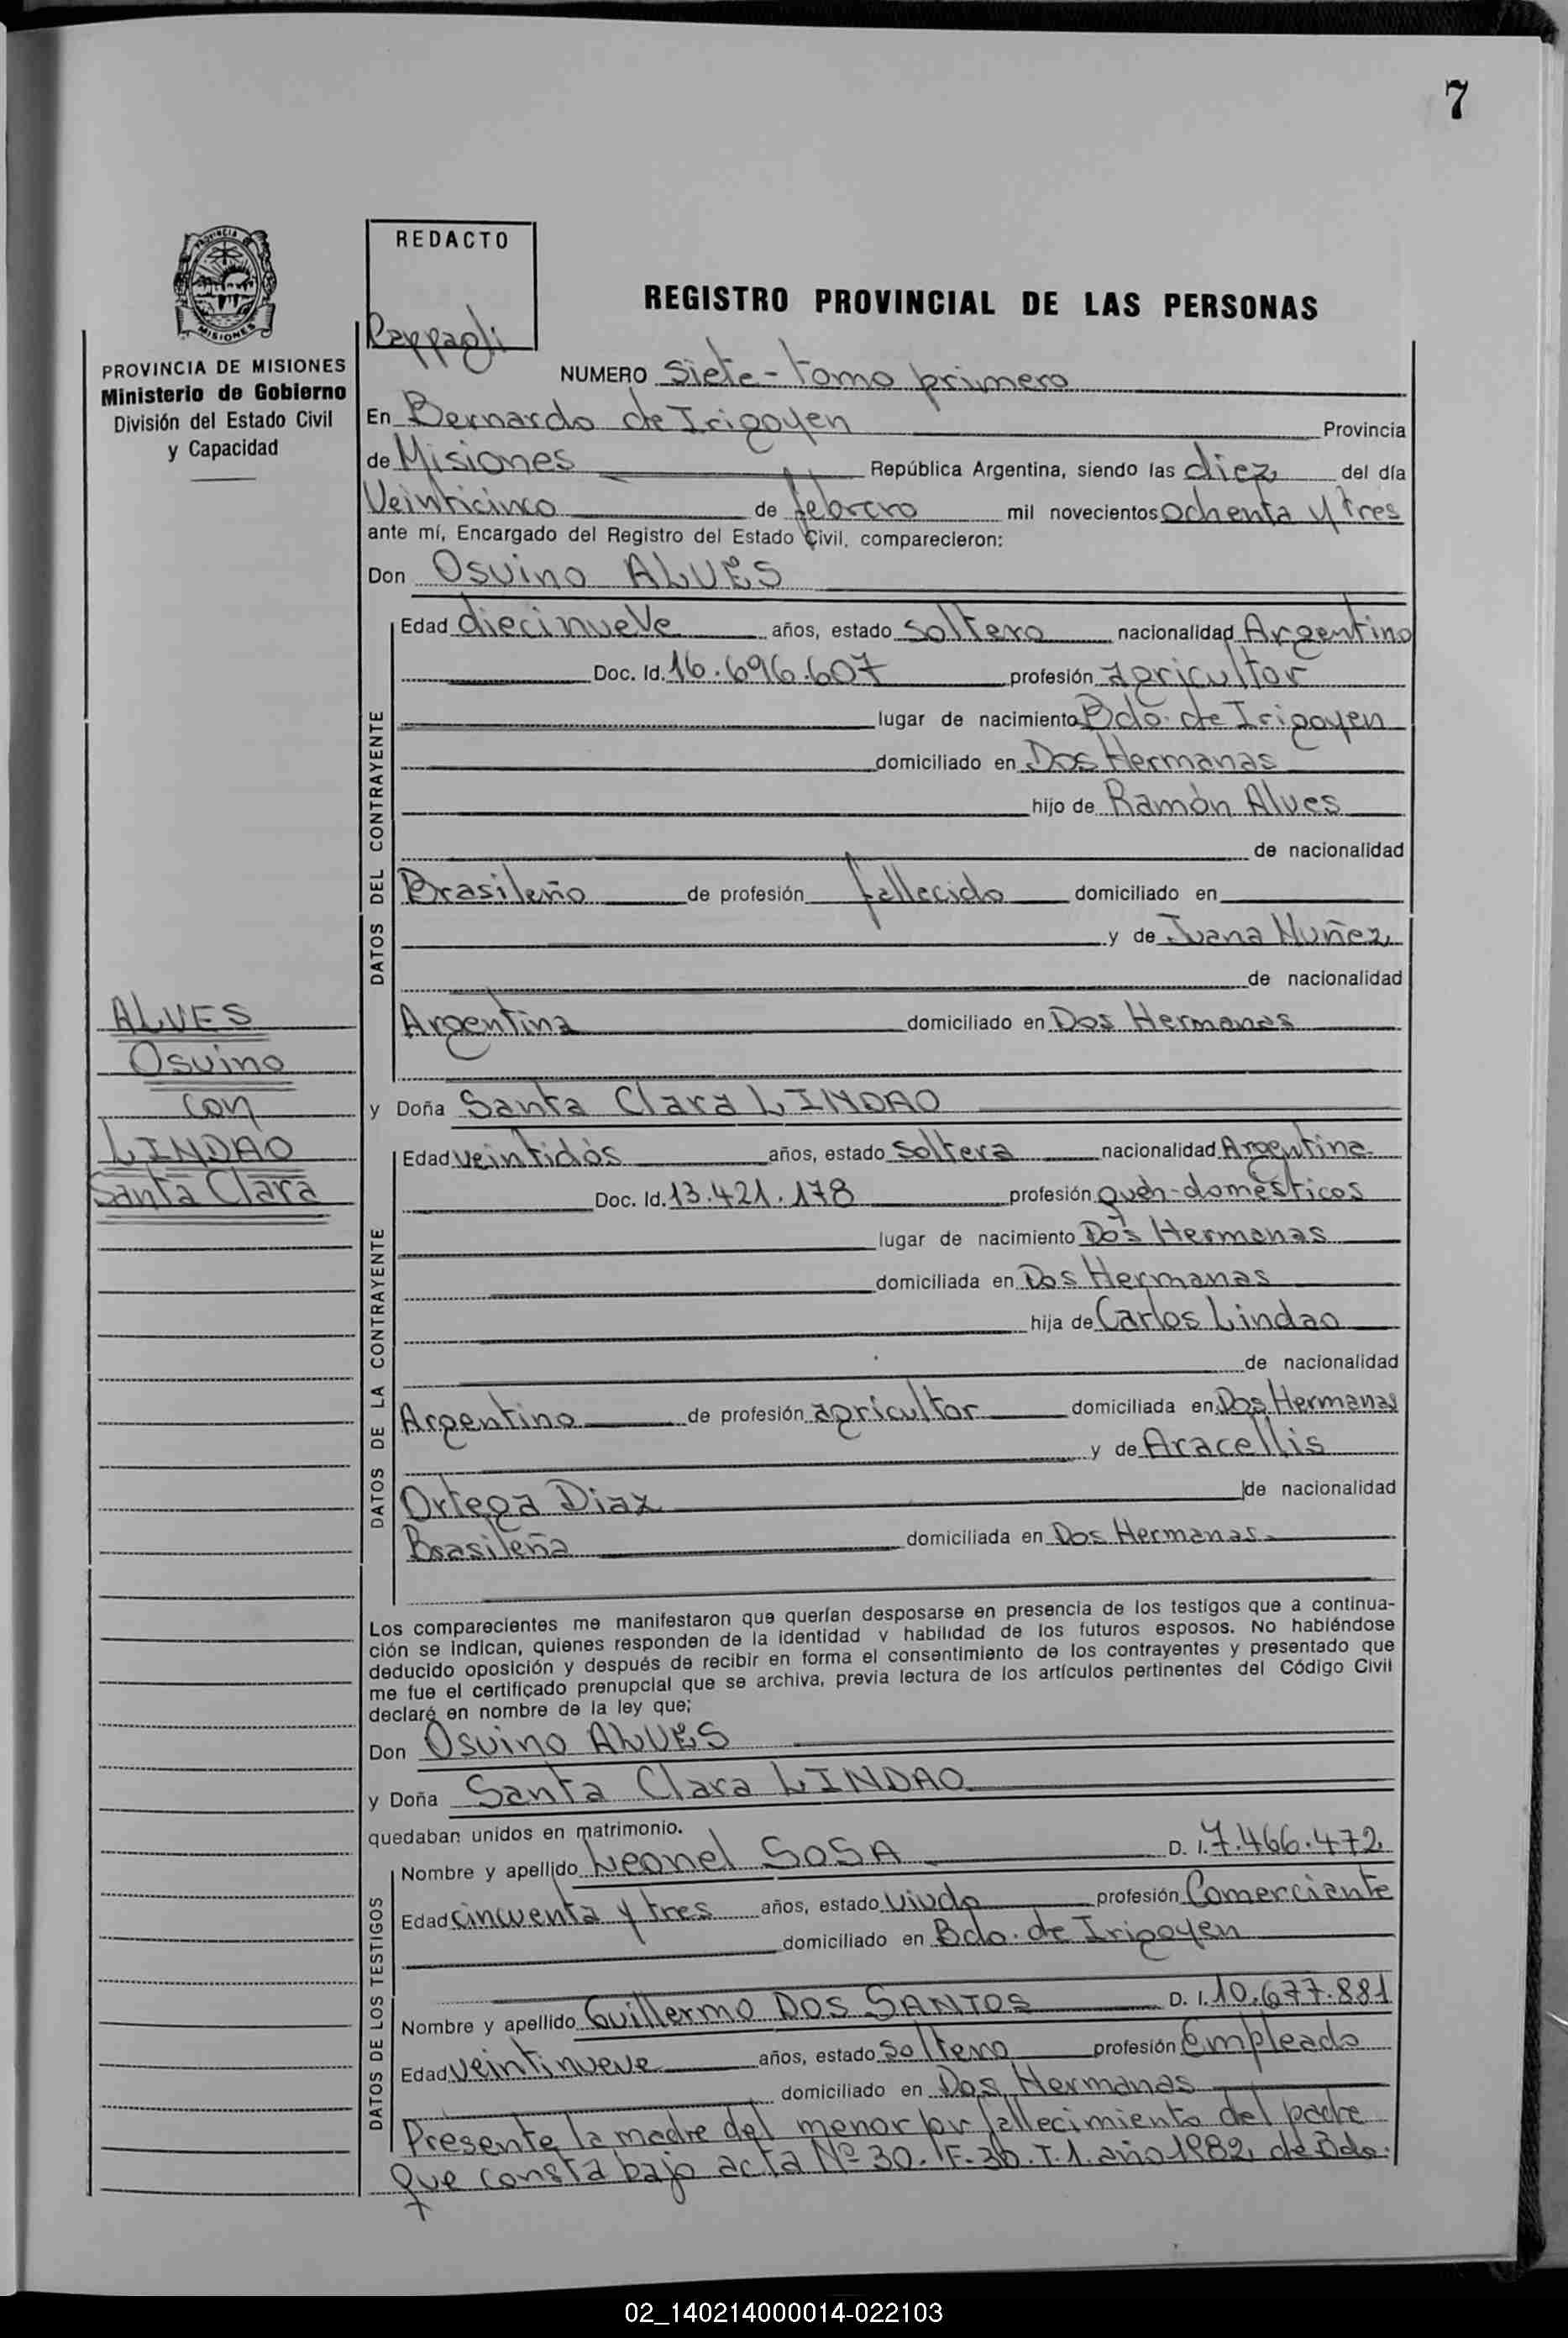 7
REDACTO
REGISTRO PROVINCIAL DE LAS PERSONAS
PROVINCIA DE MISIONES
Ministerio de Gobierno
División del Estado Civil
y Capacidad
NUMERO siete - tomo primero
En Bernardo de Irigoyen Provincia
de Misiones República Argentina, siendo las diez del día
Veinticinco de febrero mil novecientos ochenta y tres
ante mí, Encargado del Registro del Estado Civil, comparecieron:
Don Osvino ALVES
DATOS DEL CONTRAYENTE
Edad diecinueve años, estado soltero nacionalidad Argentino
Doc. Id. 16.696.607 profesión agricultor
lugar de nacimiento Bdo. de Irigoyen
domiciliado en Dos Hermanas
hijo de Ramón Alves
de nacionalidad
Brasileño de profesión fallecido domiciliado en
y de Juana Nuñez
de nacionalidad
Argentina domiciliado en Dos Hermanas
ALVES
Osvino
con
LINDAO
Santa Clara
y Doña Santa Clara LINDAO
DATOS DE LA CONTRAYENTE
Edad veintidós años, estado soltera nacionalidad Argentina
Doc. Id. 13.421.178 profesión queh-domésticos
lugar de nacimiento Dos Hermanas
domiciliada en Dos Hermanas
hija de Carlos Lindao
de nacionalidad
Argentino de profesión agricultor domiciliada en Dos Hermanas
y de Aracellis
Ortega Diaz de nacionalidad
Brasileña domiciliada en Dos Hermanas
Los comparecientes me manifestaron que querían desposarse en presencia de los testigos que a continua-
ción se indican, quienes responden de la identidad y habilidad de los futuros esposos. No habiéndose
deducido oposición y después de recibir en forma el consentimiento de los contrayentes y presentado que
me fue el certificado prenupcial que se archiva, previa lectura de los artículos pertinentes del Código Civil
declaré en nombre de la ley que;
Don Osvino ALVES
y Doña Santa Clara LINDAO
quedaban unidos en matrimonio.
DATOS DE LOS TESTIGOS
Nombre y apellido Leonel SOSA D. I. 7.466.472
Edad cincuenta y tres años, estado viudo profesión Comerciante
domiciliado en Bdo. de Irigoyen
Nombre y apellido Guillermo DOS SANTOS D. I. 10.677.881
Edad veintinueve años, estado soltero profesión Empleado
domiciliado en Dos Hermanas
Presente la madre del menor por fallecimiento del padre
que consta bajo acta Nº 30. F. 30. T. 1. año 1982 de Bdo.
02_140214000014-022103